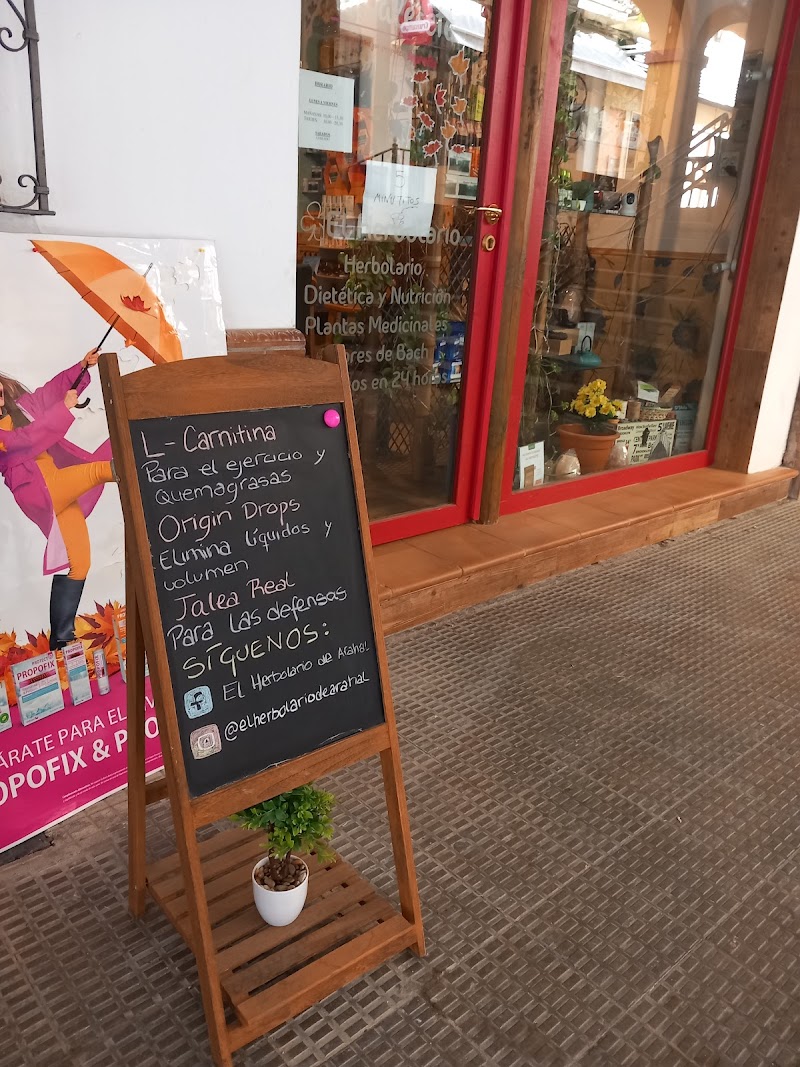 HORARIO
5
MINUTITOS
El Herbolario
Herbolario,
Dietética y Nutrición
Plantas Medicinales
ores de Bach
os en 24 horas
L-Carnitina
Para el ejercicio y
Quemagrasas
Origin Drops
Elimina líquidos y
volumen
Jalea Real
Para las defensas
SÍGUENOS:
El Herbolario de Arahal
@elherbolariodearahal
PROPOFIX
ÁRATE PARA EL
OPOFIX & PRO